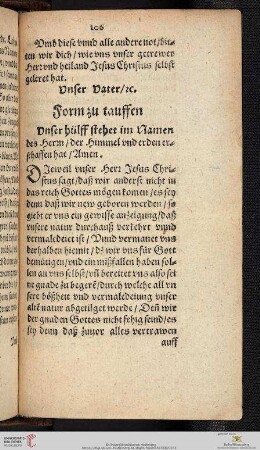 106
Vmb diese vnnd alle andere not/ bit-
ten wir dich/ wie vns vnser getrewer
Herr vnd heiland Jesus Christus selbst
geleret hat.
Vnser Vater/ ꝛc.
Form zu tauffen
Vnser hülff stehet im Namen
des Herrn/ der Himmel vnd erden er-
schaffen hat/ Amen.
DJeweil vnser Herr Jesus Chri-
stus sagt/ daß wir anderst nicht in
das reich Gottes mögen komen/ es sey
denn daß wir new geboren werden/ so
gibt er vns ein gewisse anzeigung/ daß
vnsere natur durchauß verkehrt vnnd
vermaledeiet ist/ Vnnd vermanet vns
derhalben hiemit/ dz wir vns für Gott
demütigen/ vnd ein mißfallen haben sol-
len an vns selbst/ vñ bereitet vns also sei-
ne gnade zu begerē/ durch welche all vn
sere bößheit vnd vermaledeiung vnser
altē natur abgetilget werde/ Deñ wir
der gnaden Gottes nicht fehig seind/ es
sey denn daß zuuor alles vertrawen
auff